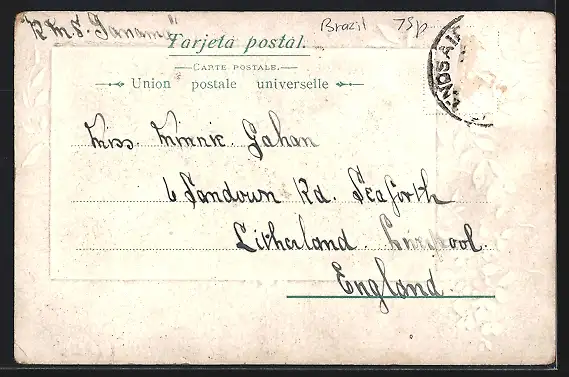 "R.M.S. Panama"
Brazil 75p
Tarjeta postal.
CARTE POSTALE.
Union postale universelle
Miss. Minnie. Gahan
6 Sandown Rd. Seaforth
Litherland. Liverpool.
England.